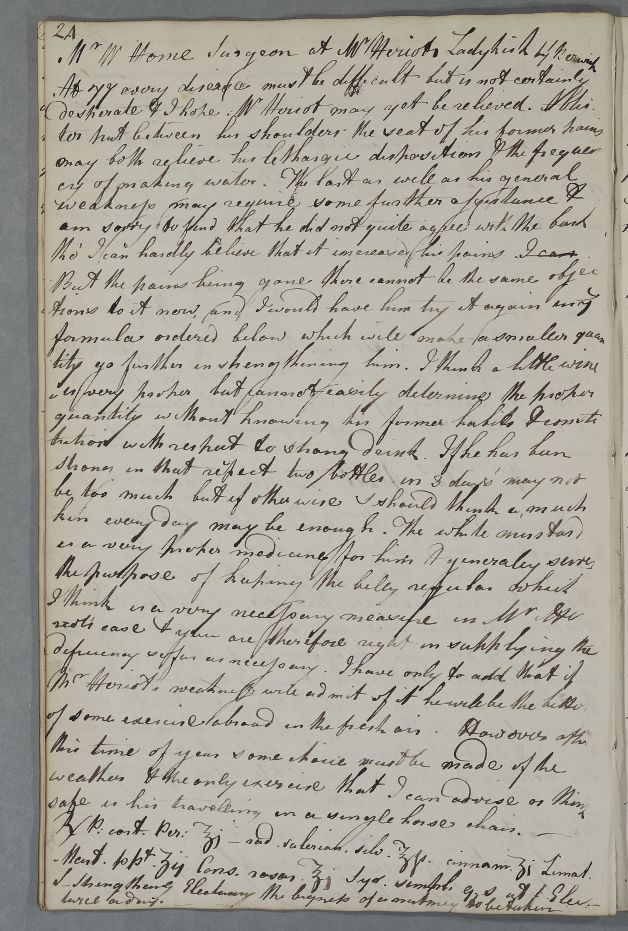 21
Mr W Home Surgeon at Mr Heriots Ladykirk by Berwick
At 77 every disease must be difficult but is not certainly
desperate & I hope Mr Heriot may yet be relieved. A blis
ter put between his shoulders the seat of his former pains
may both relieve his lethargic disposition & the frequen
cy of making water. The last as well as his general
weakness may require some further assistance &
am sorry to find that he did not quite agree with the bark
tho' I can hardly believe that it increased his pains
But the pains being gone there cannot be the same objec
tions to it now, and I would have him try it again in ye
formula ordered below which will make a smaller quan
tity go further in strengthening him. I think a little wine
is very proper but cannot easily determine the proper
quantity without knowing his former habits & consti
tution with respect to strong drink. If he has been
strong in that respect two bottles in 3 days may not
be too much but if otherwise I should think a mutch
kin every day may be enough. The white mustard
is a very proper medicine for him & generally serves
the purpose of keeping the belly regular which
I think is a very necessary measure in Mr He
riot's case & you are therefore right in supplying the
deficiency as necessary. I have only to add that if
Mr Heriot's weakness will admit of it he will be the better
of some exercise abroad in the fresh air. However at
this time of year some choice must be made of the
weather & the only exercise that I can advise or think
safe is his travelling in a single horse chair. —
℞ P: cort. Per: ℥j — rad. valerian. silv. ℥ss. cinnam. ʒj Limat.
Mart. ppt. ʒij Cons. rosar. ℥j Syr. simpl. q. s. ut f. Elec.—
S. Strengthening Electuary the bigness of a nutmeg to be taken
twice a day.